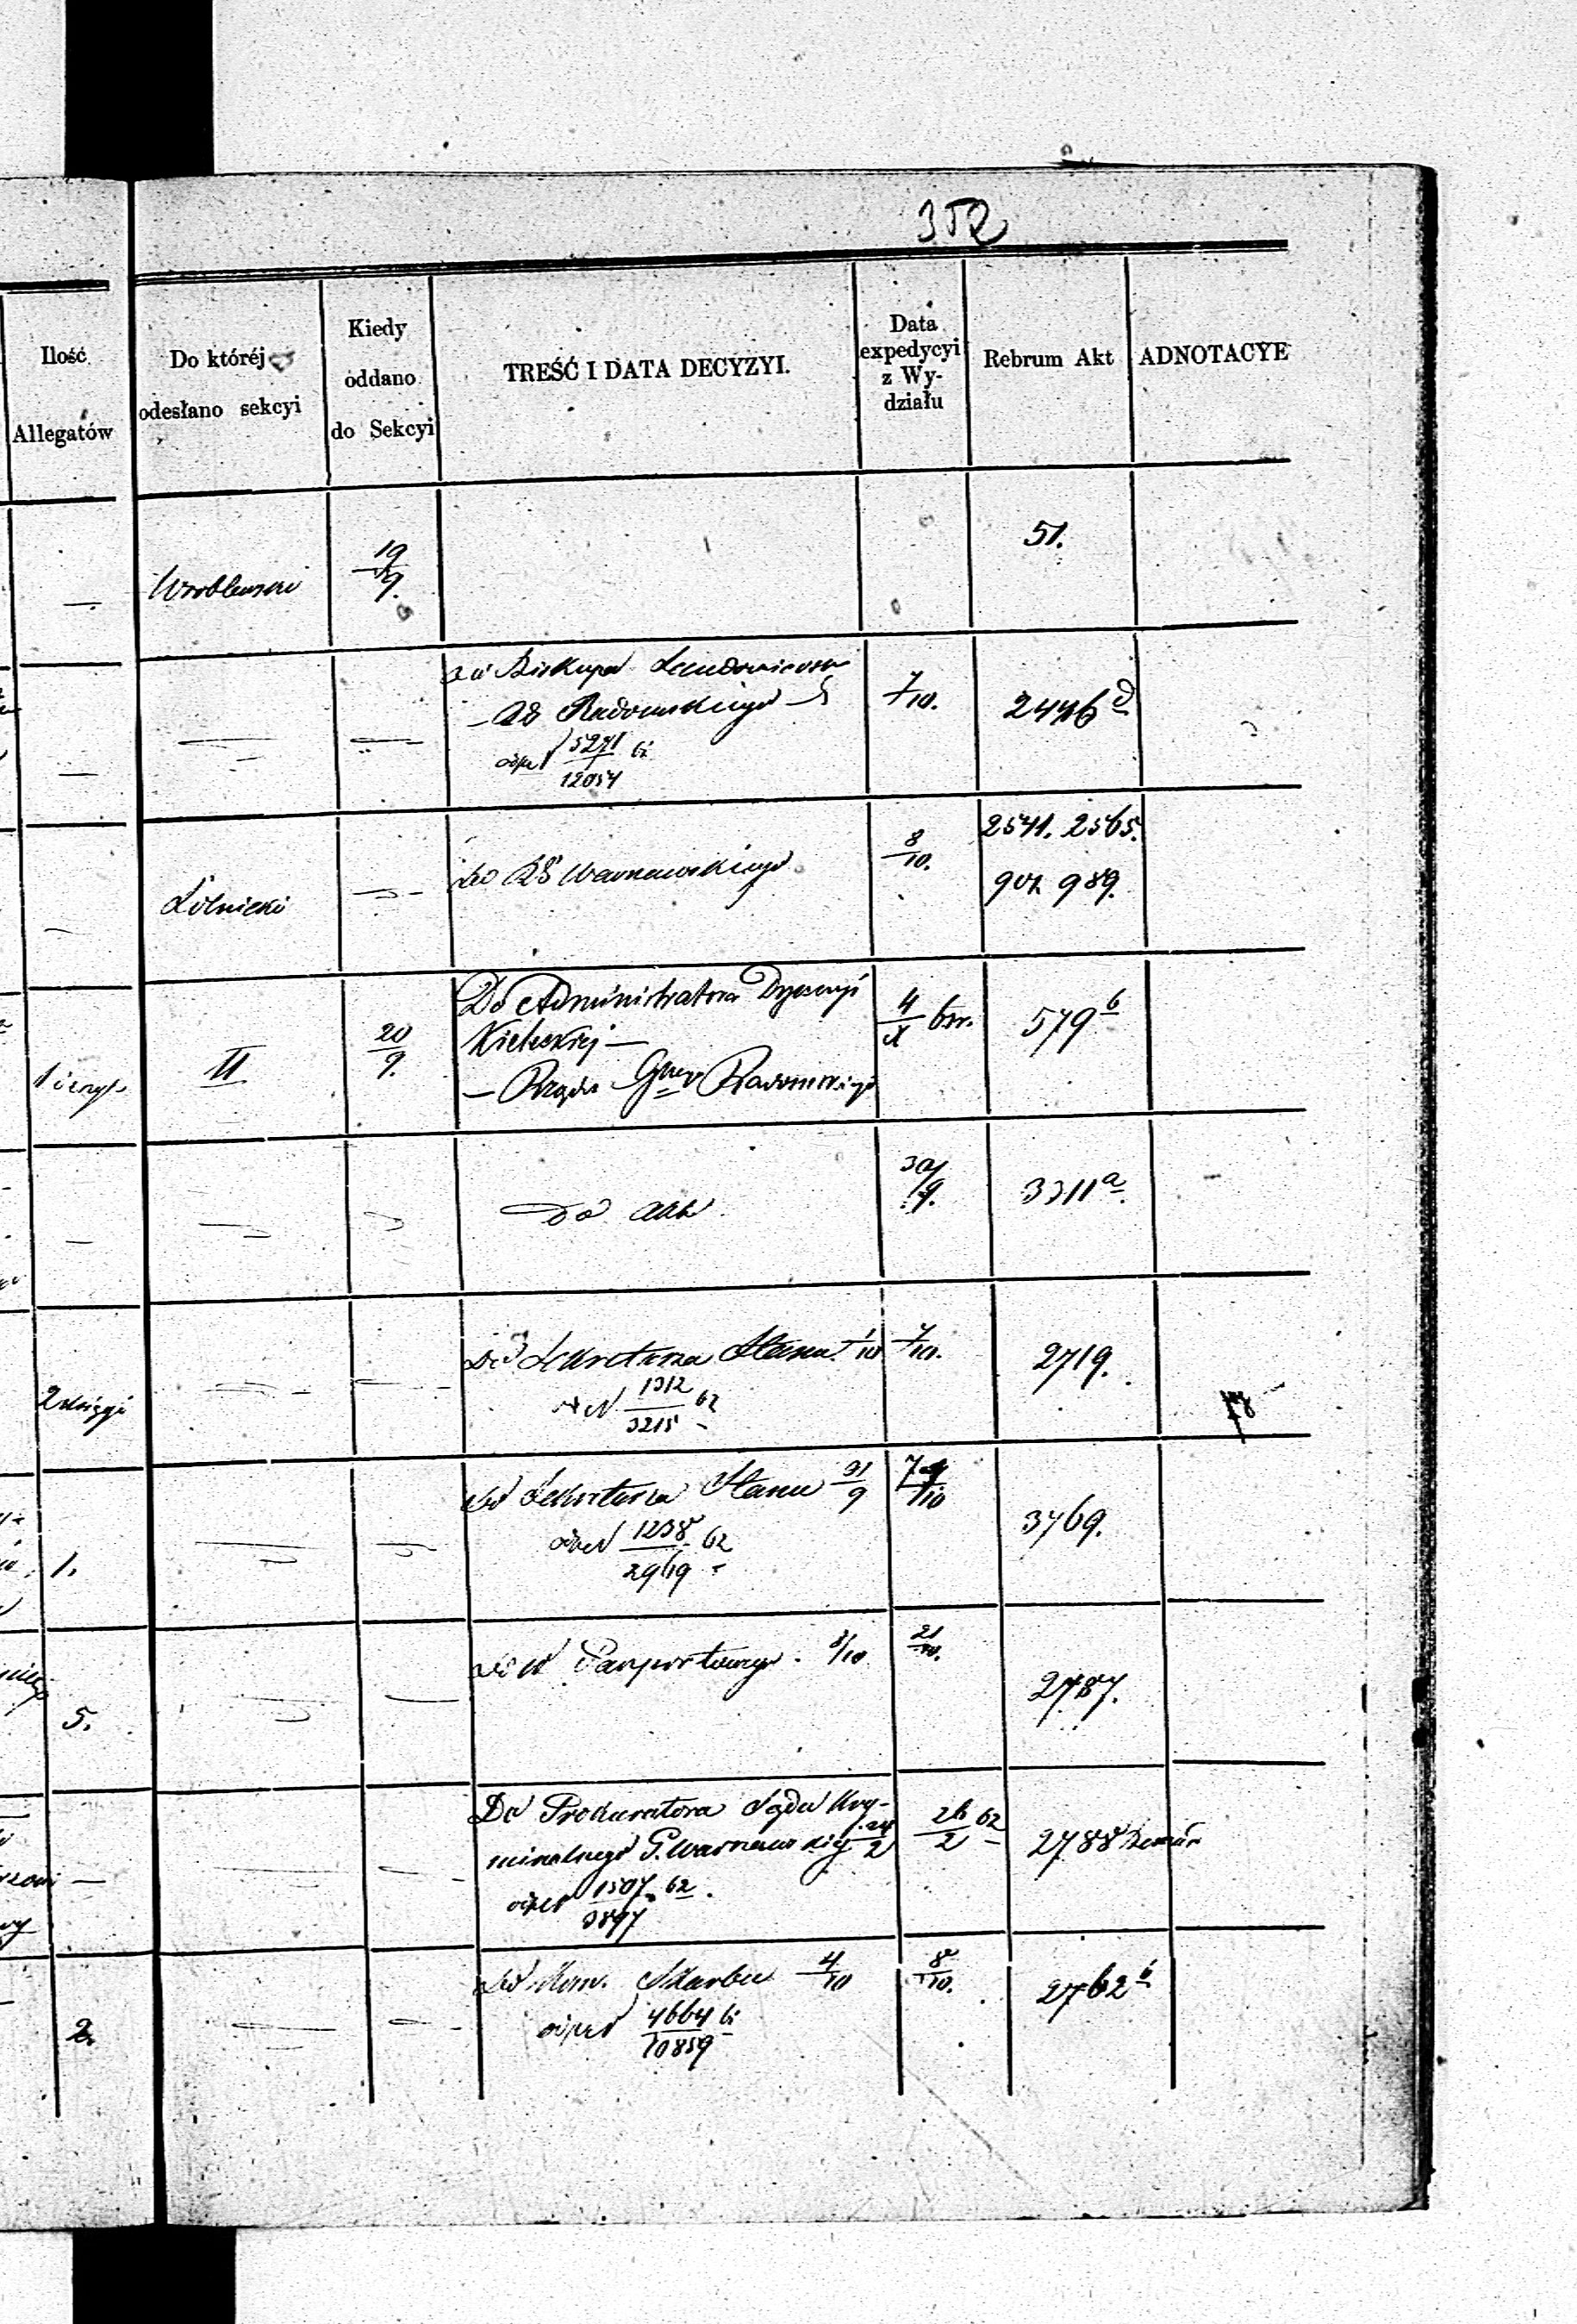 352
Ilość
Allegatów
Do któréj
odesłano sekcyi
Kiedy
oddano
do Sekcyi
TREŚĆ I DATA DECYZYI.
Data
expedycyi
z Wy-
działu
Rebrum Akt
ADNOTACYE
—
Wróblewski
19/9.
51.
—
Do Biskupa Sandomiersk
— RG Radomskiego
5271
12054
7/10.
2446 d
—
Żółnicki
do RG Warszawskiego
8/10.
2541. 2565.
907. 989.
II
20/9.
Do Administratora Dyecezyi
Kieleckiej —
— Rządu Gber Radomskiego
4/X br.
579 b
—
Do akt
30/9.
3311 a
2 księgi
Do Sekretarza Stanu 1/10
1312 62
3215
7/10.
2719.
1.
Do Sekretarza Stanu
1238 62
2969
3769.
5.
do W Pasportowego.
21/10.
2787.
—
Do Prokuratora Sądu Kry-
minalnego G. Warszawskiej 24/2
1507 62
3897
26/2 62
2788
2.
Do Kom. Skarbu 4/10
4664
10859
8/10.
2762 b